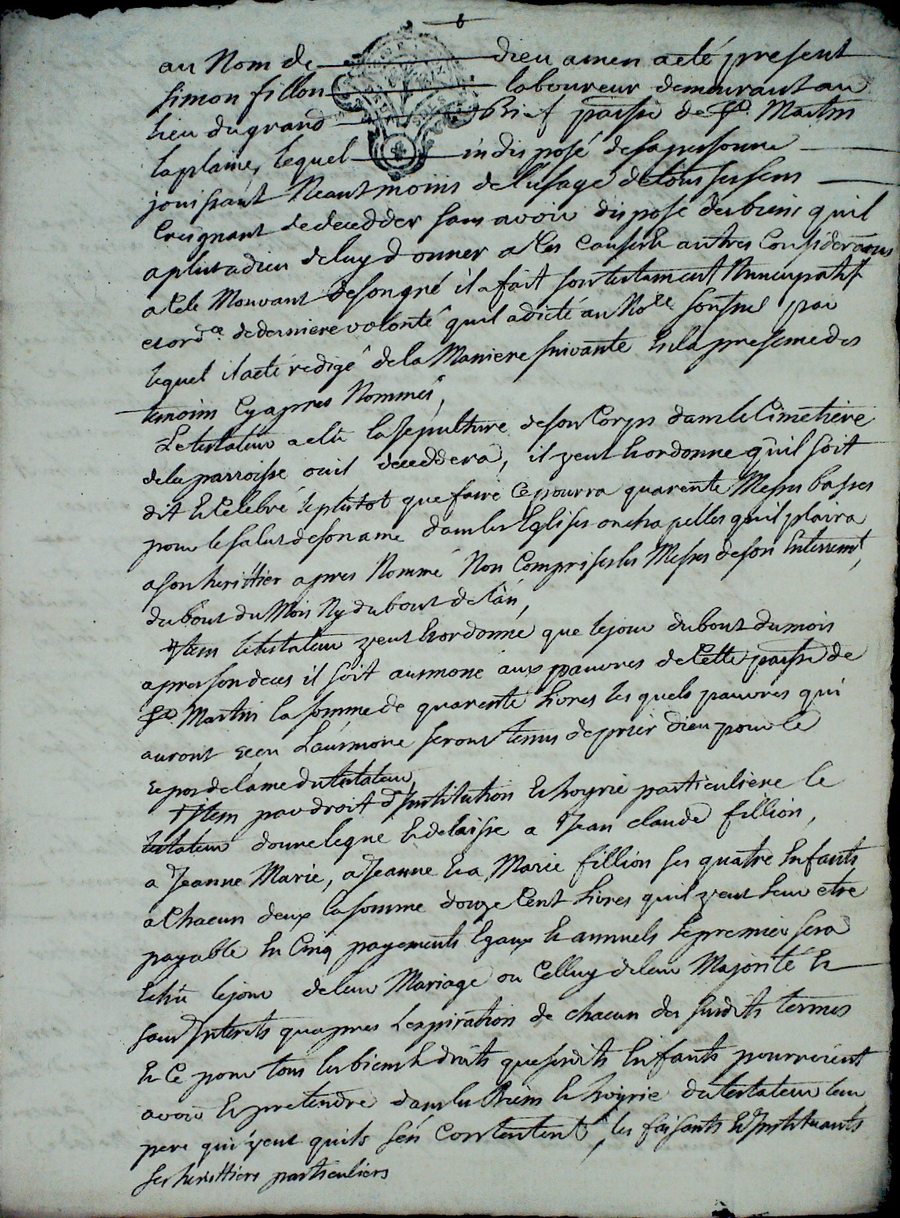 6
au Nom de dieu amen a eté present
simon fillon laboureur demeurant au
lieu du grand Brief parsse de St. Martin
laplaine, lequel indisposé de sa personne
jouissant Neantmoins de l'usage de tous ses sens
Creignant de decedder sans avoir disposé des biens qu'il
a plut a dieu de luy donner a Ces Causes & autres Considerãons
a Cele Mouvant de son gré il a fait son testament Nuncupatif
et ordre. de derniere volonté qu'il a dicté au Nore. sousné par
lequel il a eté redigé de la Maniere suivante En la presence des
temoins Cy apres Nommés,
Le testateur a elû la sepulture de son Corps dans le Cimetière
de la parroisse ou il deceddera, il veut & ordonne qu'il soit
dit & Celebré le plutot que faire Ce pourra quarente Messes basses
pour le salut de son ame dans les Eglises ou chapelles qu'il plaira
a son herittier apres Nommé Non Comprises les Messes de son Enterremt,
du bout du Mois Ny du bout de l'an,
Item le testateur veut & ordonne que le jour du bout du mois
apres son deces il soit aumoné aux pauvres de Cette parsse de
St. Martin la somme de quarente livres lesquels pauvres qui
auront recu L'aumone seront tenus de prier dieu pour le
repos de l'ame du testateur,
Item par droit d'Institution & hoyrie particuliere le
testateur donne legue & delaisse a Jean claude fillion,
a Jeanne Marie, a Jeanne & a Marie fillion ses quatre Enfants
a Chacun deux la somme douze Cent livres qu'il veut leur etre
payable En Cinq payements Egaux & annuels le premier sera
Echû le jour de leur Mariage ou Celluy de leur Majorité &
sans Interets qu'apres l'expiration de chacun des susdits termes
& Ce pour tous les biens & droits que sesdits Enfants pourroient
avoir & pretendre dans les Biens & hoyrie du testateur leur
pere qui veut quils s'en Contentent, les faisants & Instituants
ses herittiers particuliers